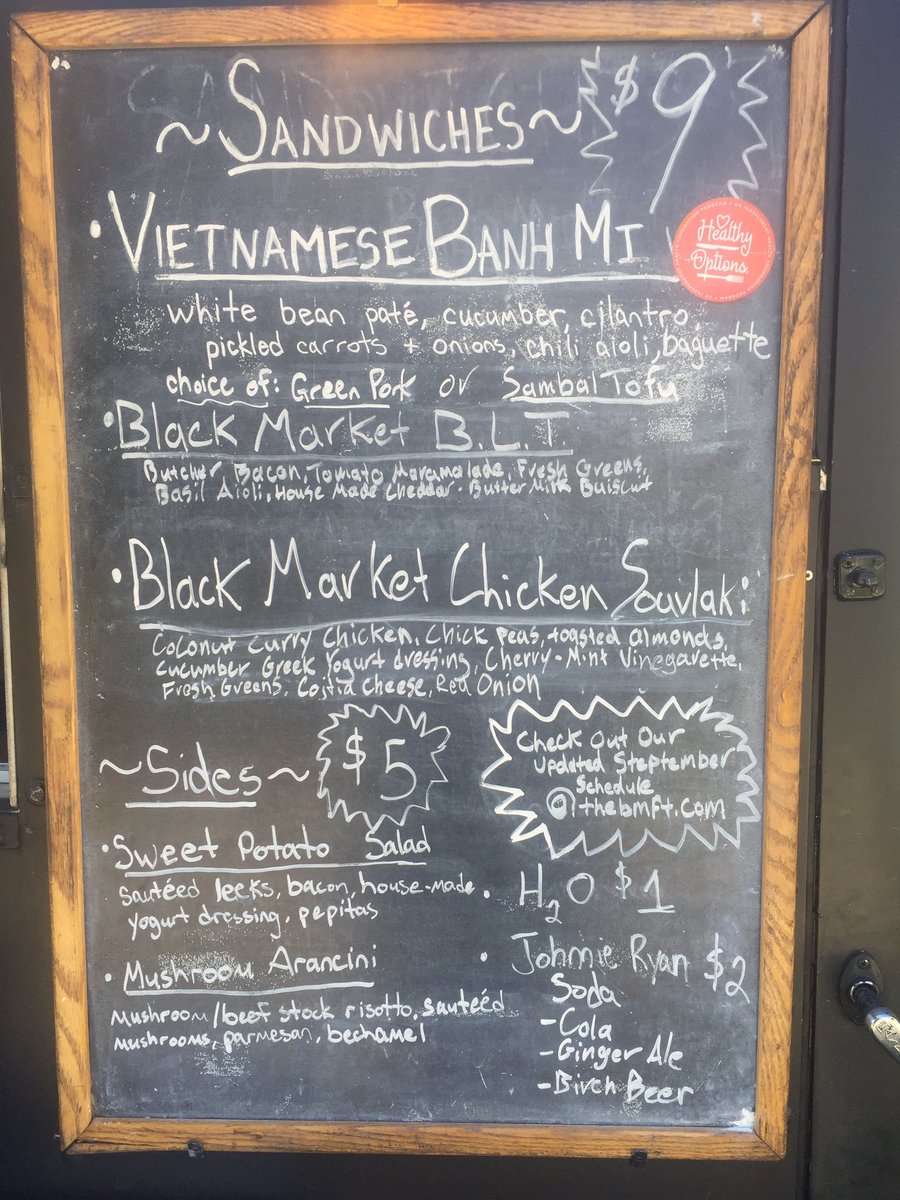 ~SANDWICHES~
$9
• VIETNAMESE BANH MI
Healthy
Options.
white bean paté, cucumber, cilantro,
pickled carrots + onions, chili aioli, baguette
choice of: Green Pork or Sambal Tofu
• Black Market B.L.T.
Butcher Bacon, Tomato Maramalade, Fresh Greens,
Basil Aioli, House Made Cheddar-Butter Milk Buiscuit
• Black Market Chicken Souvlaki
Coconut Curry Chicken, Chick peas, toasted almonds,
Cucumber Greek Yogurt dressing, Cherry-Mint Vinegarette,
Fresh Greens, Cojita Cheese, Red Onion
~Sides~
$5
Check Out Our
updated Steptember
Schedule
@thebmft.com
• Sweet Potato Salad
sautéed leeks, bacon, house-made
yogurt dressing, pepitas
• Mushroom Arancini
mushroom/beef stock risotto, sauteéd
mushrooms, parmesan, bechamel
• H2O $1
• Johnnie Ryan $2
Soda
-Cola
-Ginger Ale
-Birch Beer